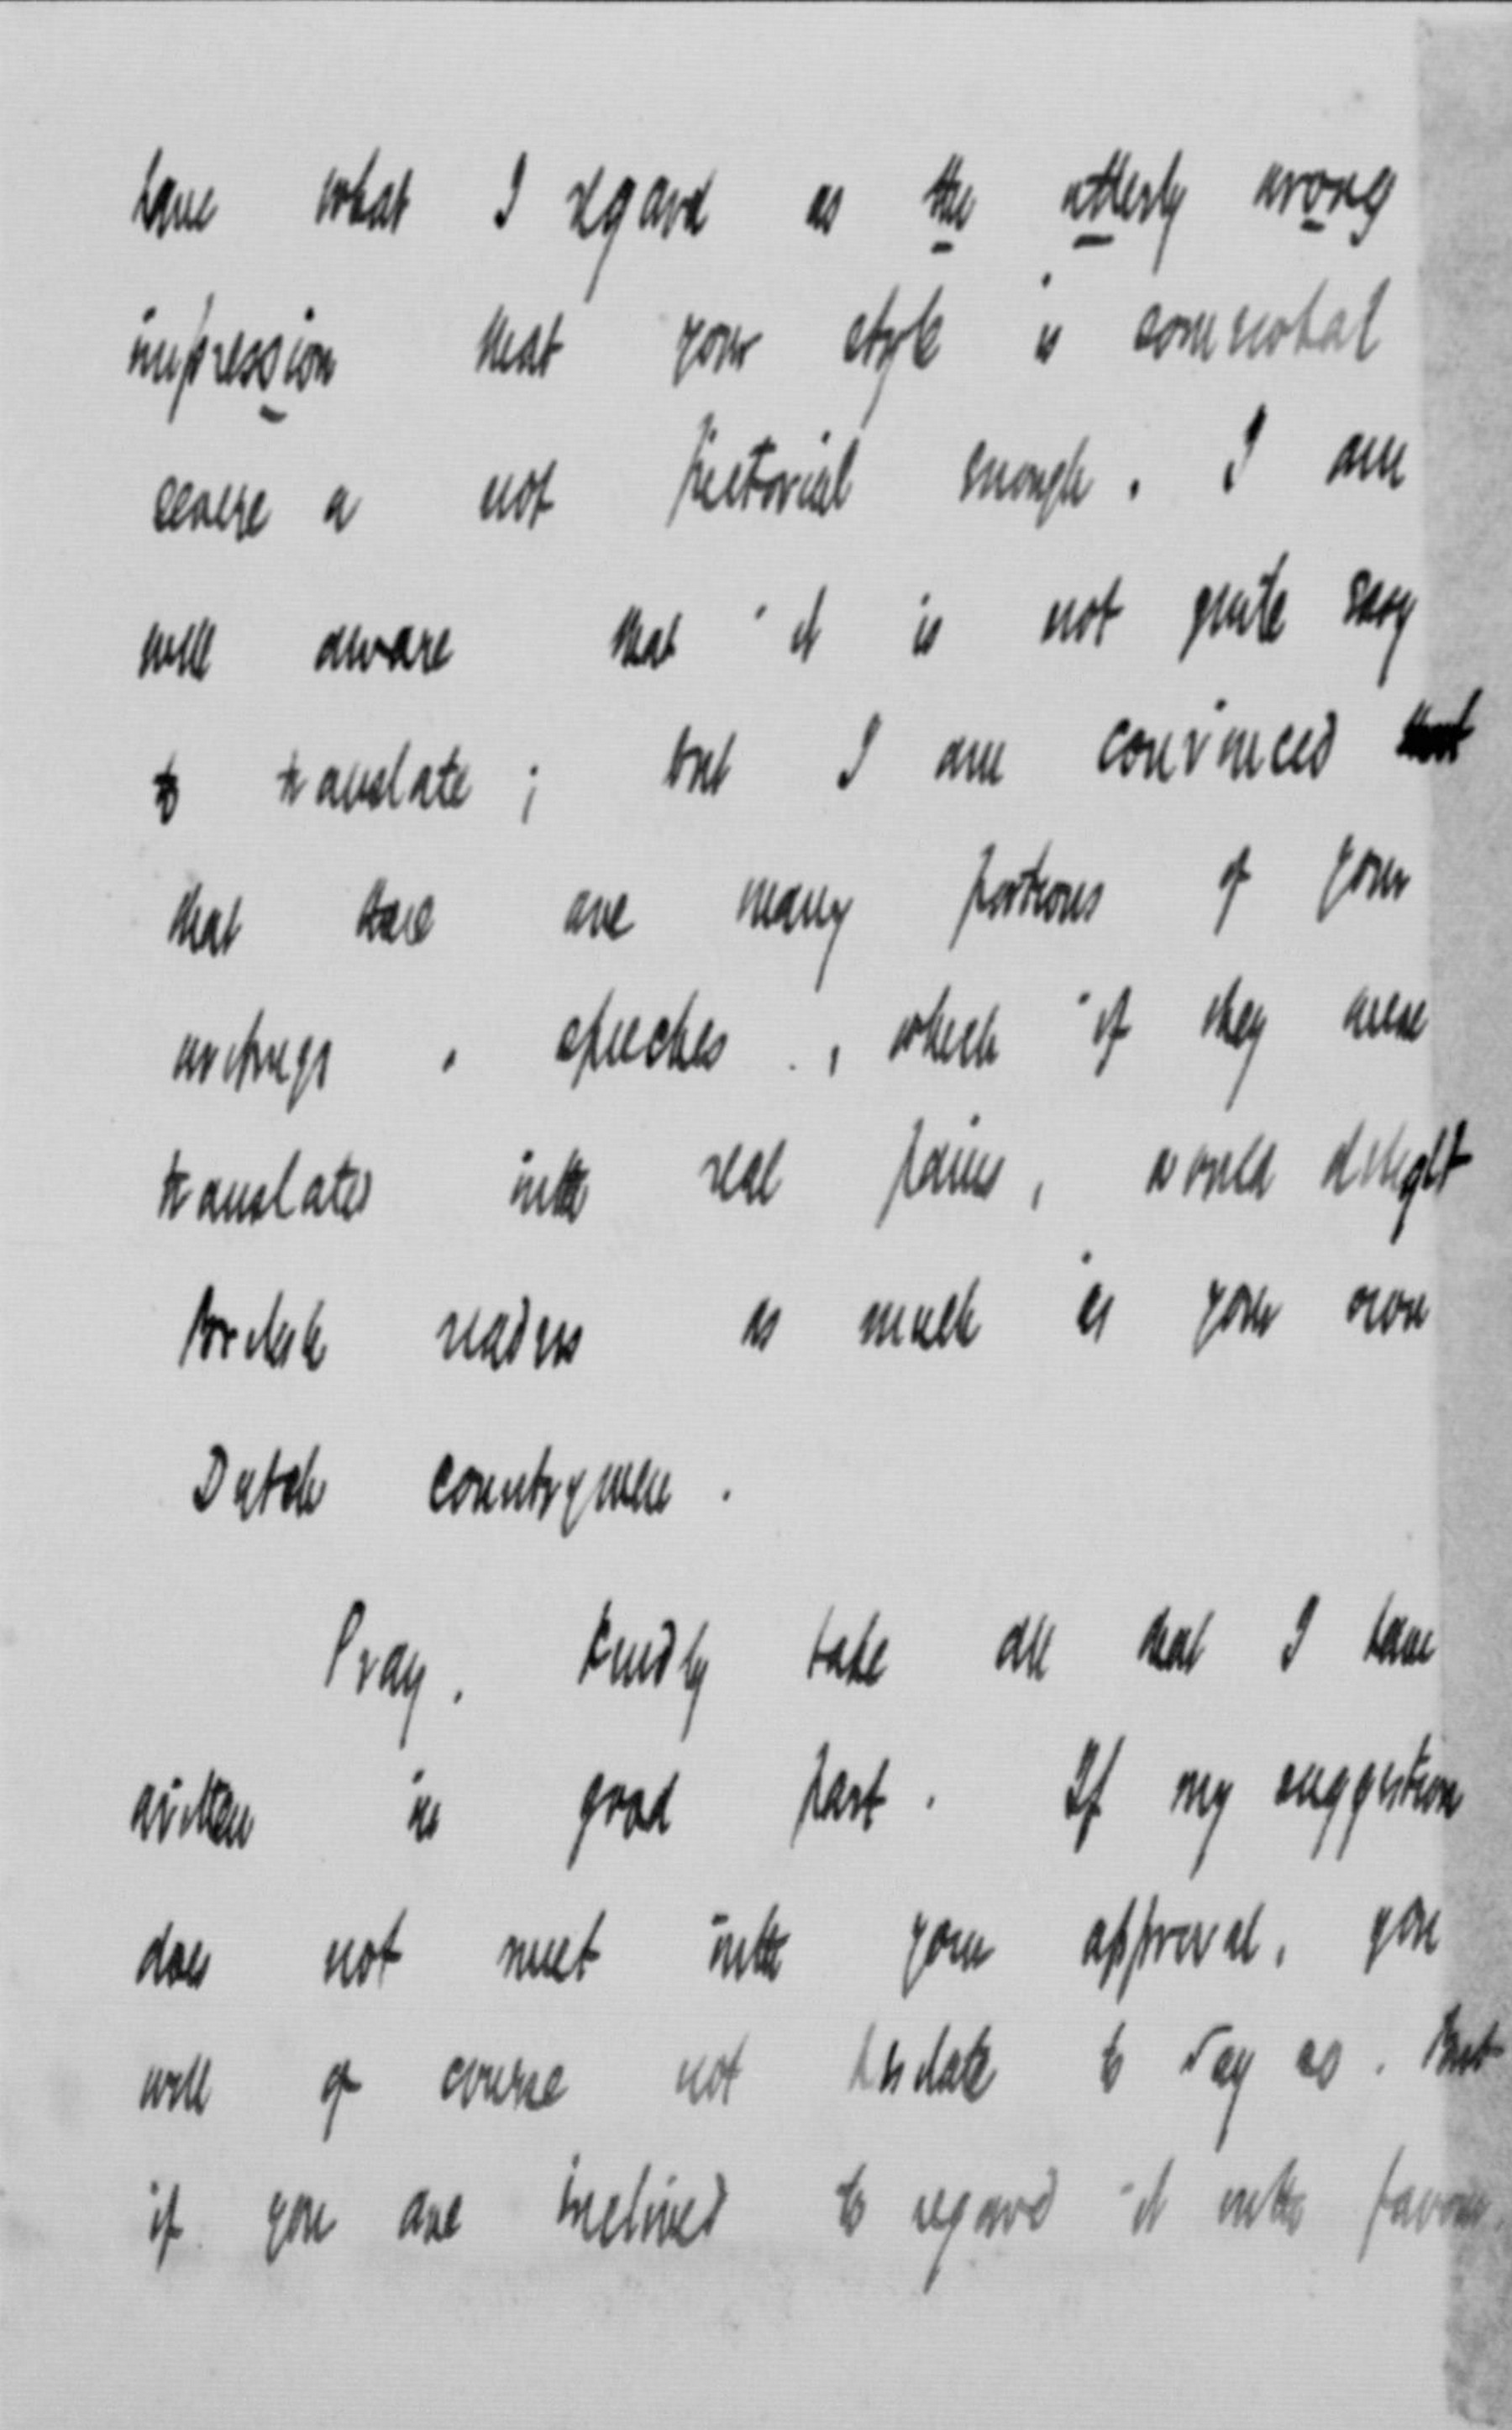 have what I regard as the utterly wrong
impression that your style is somewhat
severe & not pictorial enough. I am
well aware that it is not quite easy
to translate; but I am convinced that
that there are many portions of your
writings & speeches, which if they were
translated with real pains, would delight
British readers as much as your own
Dutch countrymen.
Pray, kindly take all that I have
written in good part. If my suggestion
does not meet with your approval, you
will of course not hesitate to say so. But
if you are inclined to regard it with favour,